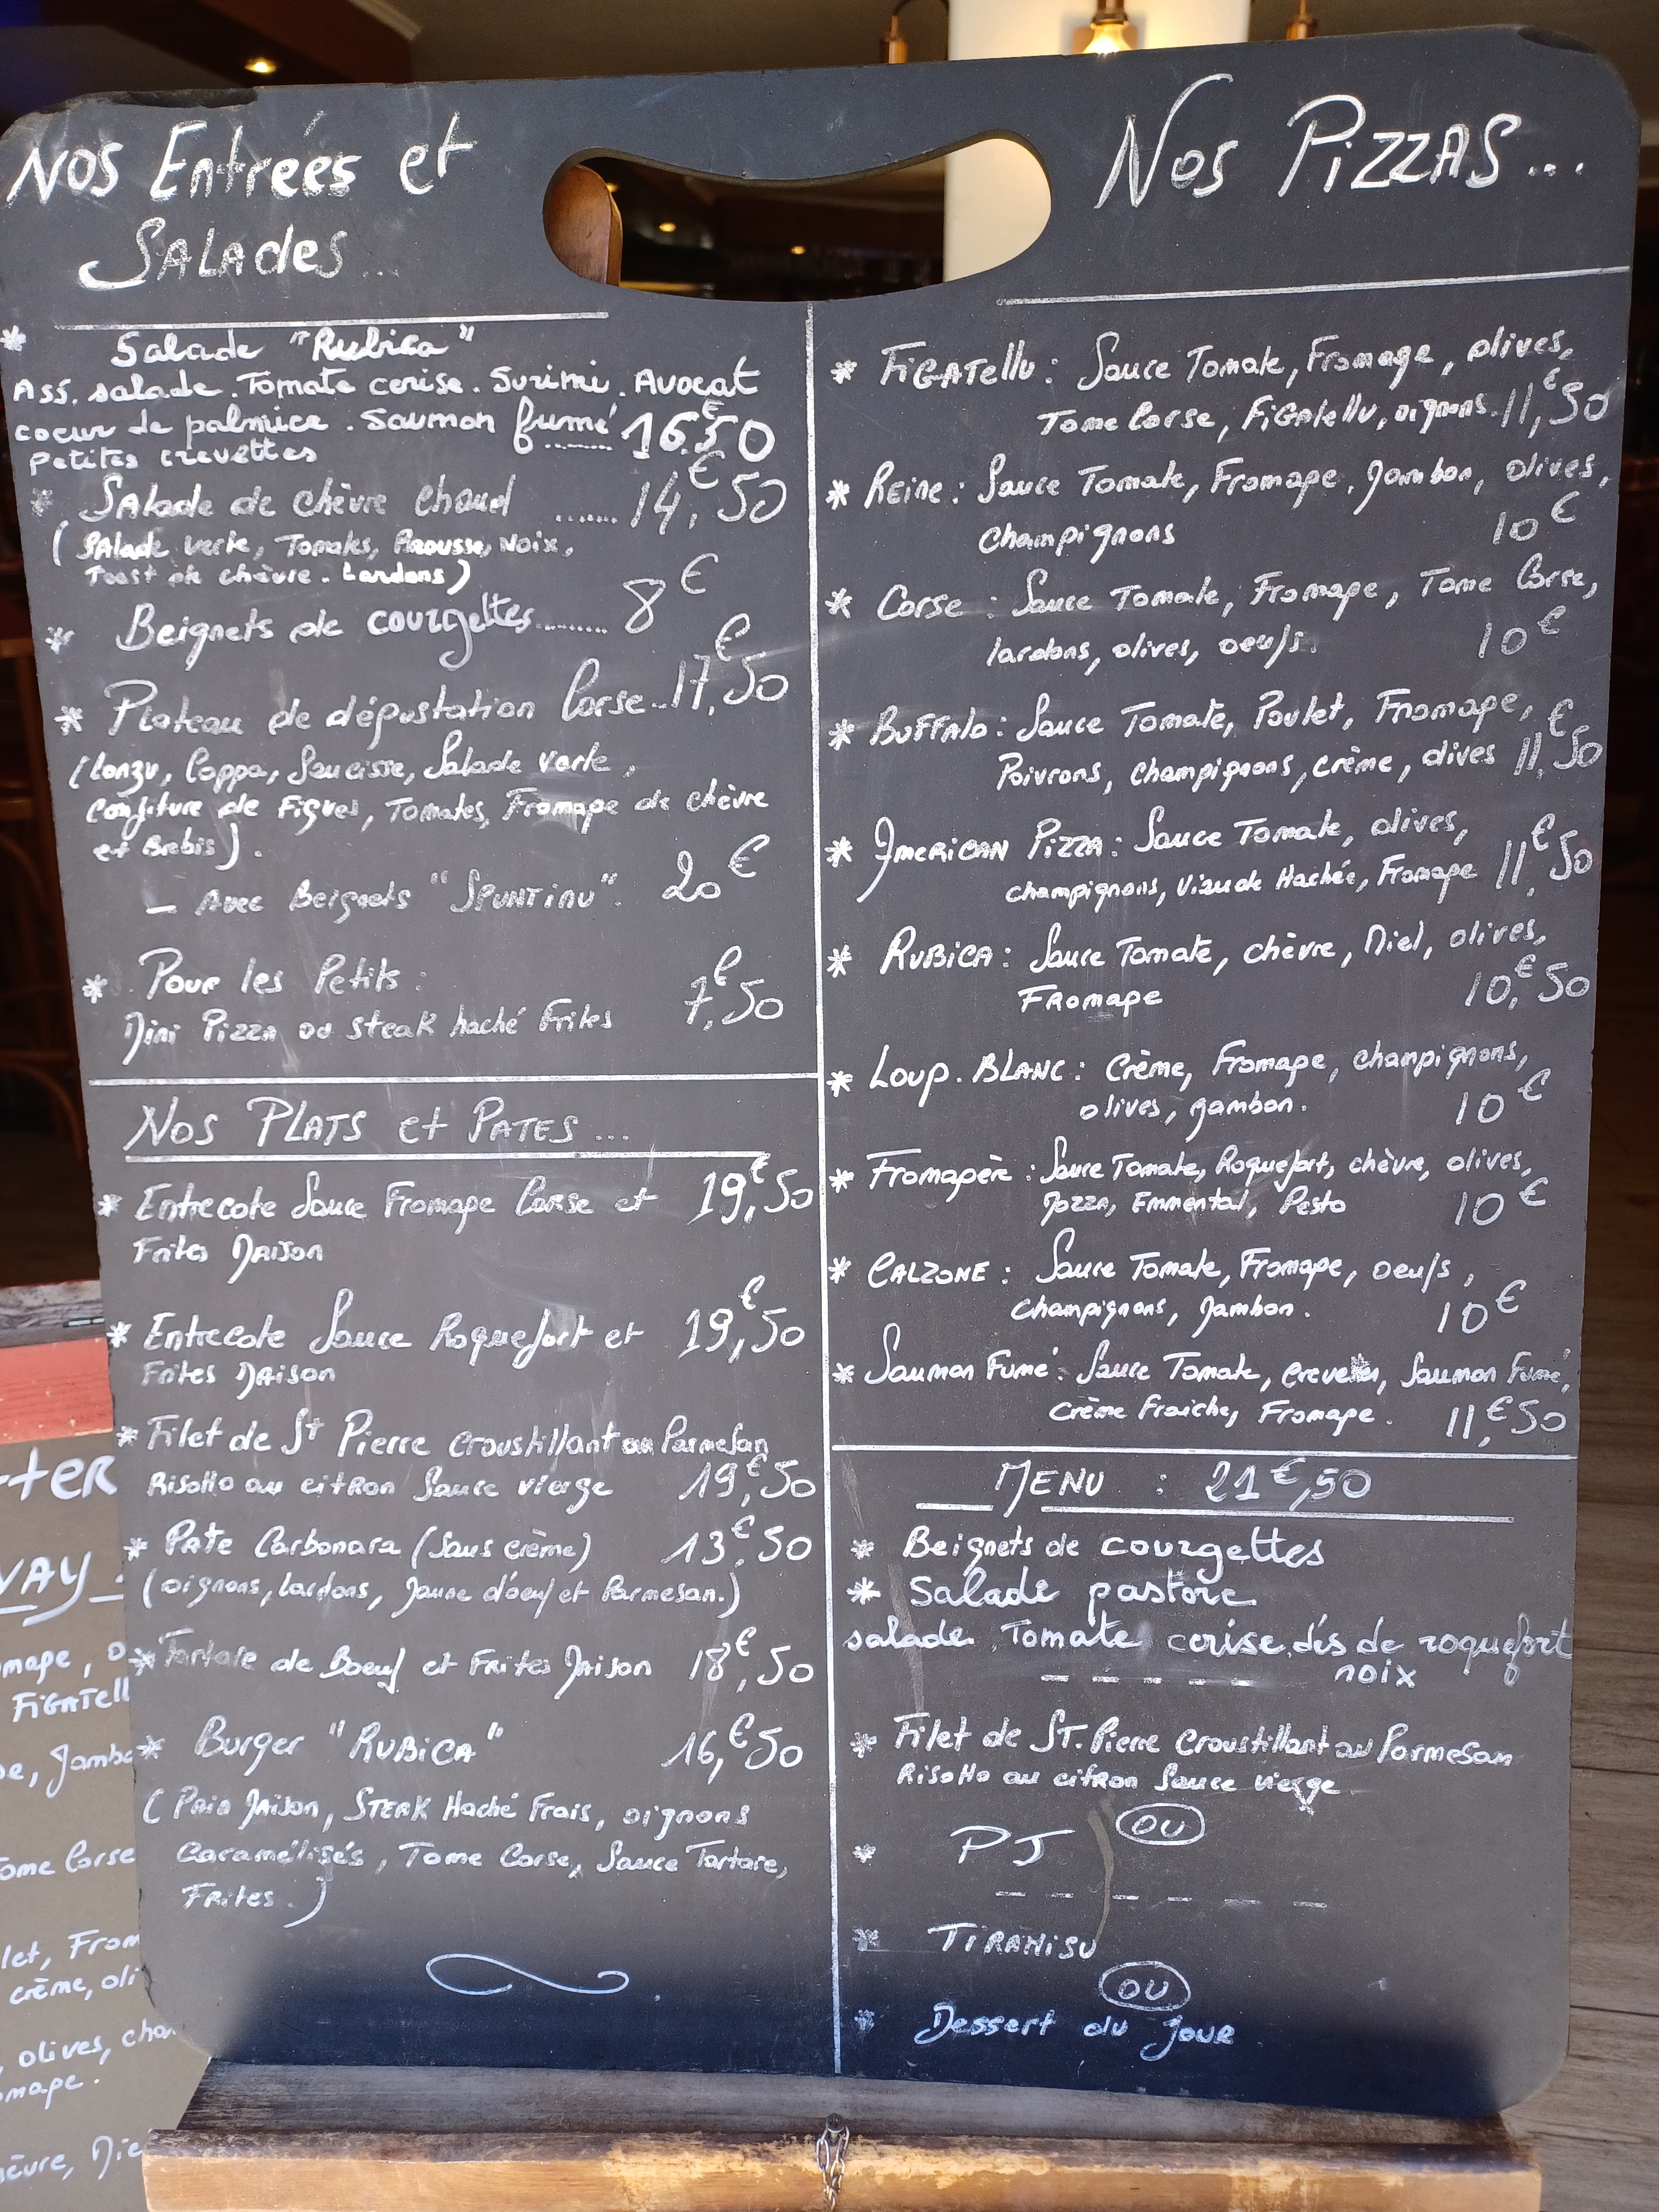 Nos Entrées et
Salades...
* Salade "Rubica"
Ass. salade. Tomate cerise. Surimi. Avocat
coeur de palmice. Saumon fumé
Petites crevettes ....... 16€50
* Salade de chèvre chaud ....... 14,€50
(Salade verte, Tomates, Brousse, Noix,
Toast de chèvre. Lardons)
* Beignets de courgettes......... 8€
* Plateau de dégustation Corse...17,€50
(Lonzu, Coppa, Saucisse, Salade verte,
Confiture de Figues, Tomates, Fromage de chèvre
et Brebis).
- Avec Beignets "Spuntinu". 20€
* Pour les Petits :
Mini Pizza ou steak haché Frites 7,€50
Nos Plats et Pates...
* Entrecote Sauce Fromage Corse et 19,€50
Frites Maison
* Entrecote Sauce Roquefort et 19,€50
Frites Maison
* Filet de St Pierre Croustillant au Parmesan
Risotto au citron Sauce vierge 19,€50
* Pate Carbonara (Sans crème) 13,€50
(oignons, lardons, Jaune d'oeuf et Parmesan.)
* Tartare de Boeuf et Frites Maison 18,€50
* Burger "Rubica" 16,€50
(Pain Maison, Steak Haché Frais, oignons
Caramélisés, Tome Corse, Sauce Tartare,
Frites.)
Nos Pizzas...
* Figatellu : Sauce Tomate, Fromage, olives,
Tome Corse, Figatellu, oignons. 11,€50
* Reine : Sauce Tomate, Fromage, Jambon, olives,
Champignons 10€
* Corse : Sauce Tomate, Fromage, Tome Corse,
lardons, olives, oeufs. 10€
* Buffalo : Sauce Tomate, Poulet, Fromage,
Poivrons, Champignons, crème, olives 11,€50
* American Pizza : Sauce Tomate, olives,
champignons, Viande Hachée, Fromage 11,€50
* Rubica : Sauce Tomate, chèvre, Miel, olives,
Fromage 10,€50
* Loup. Blanc : Crème, Fromage, champignons,
olives, Jambon. 10€
* Fromagère : Sauce Tomate, Roquefort, chèvre, olives,
Mozza, Emmental, Pesto 10€
* Calzone : Sauce Tomate, Fromage, oeufs,
Champignons, Jambon. 10€
* Saumon Fumé : Sauce Tomate, Crevettes, Saumon Fumé,
Crème Fraiche, Fromage. 11,€50
Menu : 21€,50
* Beignets de courgettes
* Salade pastore
salade. Tomate cerise. dés de roquefort
noix
* Filet de ST. Pierre Croustillant au Parmesan
Risotto au citron Sauce vierge
ou
* PJ
* Tiramisu
ou
* Dessert du Jour